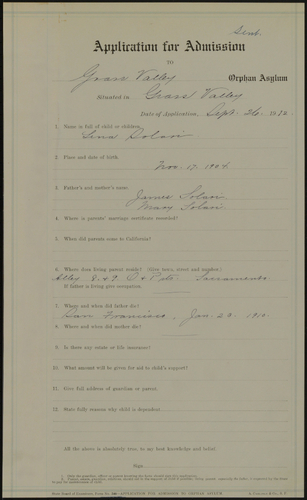 Sent.
Application for Admission
TO
Grass Valley Orphan Asylum
Situated in Grass Valley
Date of Application, Sept. 26. 191
1. Name in full of child or children.
Lena Solari
2. Place and date of birth.
Nov. 17. 1904
3. Father's and mother's name
James Solari
Mary Solari
4. Where is parents' marriage certificate recorded?
5. When did parents come to California?
6. Where does living parent reside? (Give town, street and number)
Alley 8 & 9 O & P sts. Sacramento
If father is living give occupation
7. Where and when did father die?
San Francisco, Jan. 1910.
8. Where and when did mother die?
9. Is there any estate or life insurance?
10. What amount will be given for aid to child's support?
11. Give full address of guardian or parent.
12. State fully reasons why child is dependent.
All the above is absolutely true, to my best knowledge and belief.
Sign